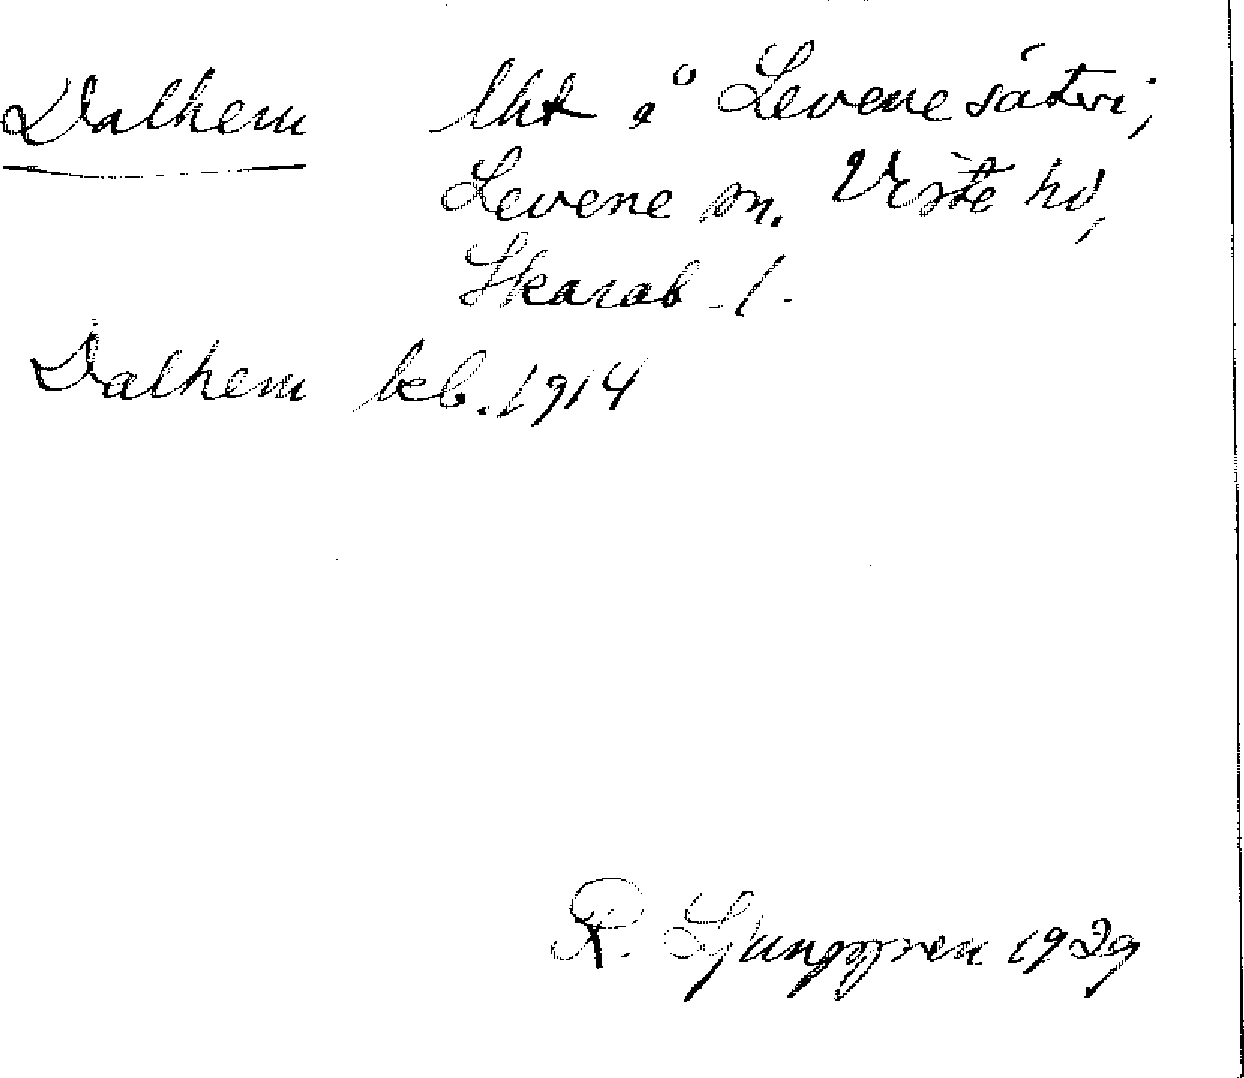 Dalhem lht å Levene säteri,
Levene sn. Viste hd,
Skarab. l.
Dalhem kb. 1914
R. Ljunggren 1929